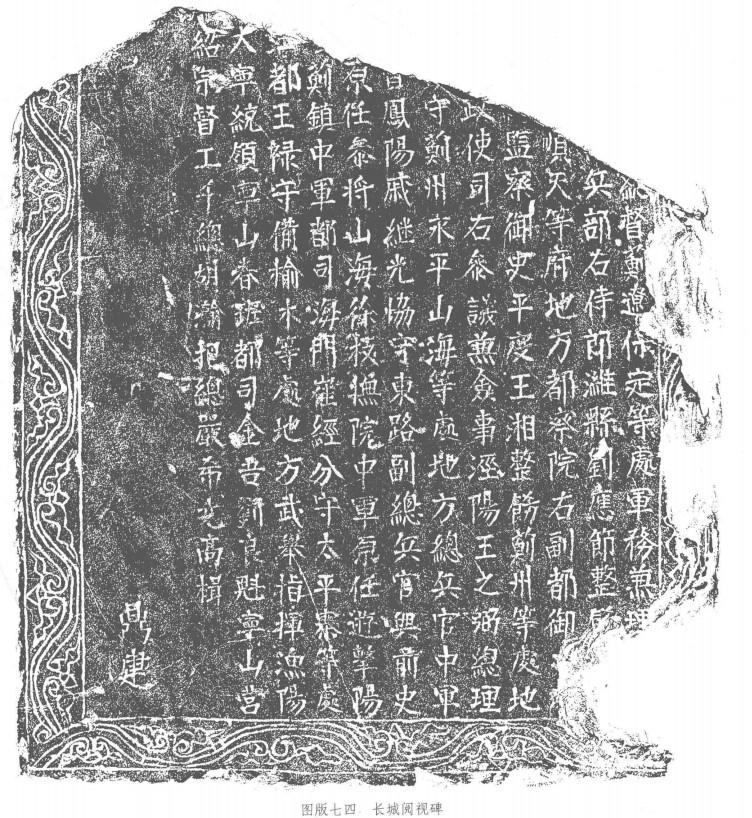 督薊遼保定等處軍務兼理
兵部右侍郎濰縣劉應節整飭
順天等府地方都察院右副都御
監察御史平度王湘整飭薊州等處地
政使司右叅議兼僉事涇陽王之弼總理
守薊州永平山海等處地方總兵官中軍
督鳳陽戚繼光協守東路副總兵官興前史
原任叅將山海徐枝撫院中軍原任遊擊陽
薊鎮中軍都司海門崔經分守太平寨等處
都王祿守備榆木等處地方武舉指揮漁陽
大寧統領寧山春班都司金吾劉良魁寧山營
紹宗督工千總胡瀚把總嚴希高楫
鼎建
图版七四 长城阅视碑